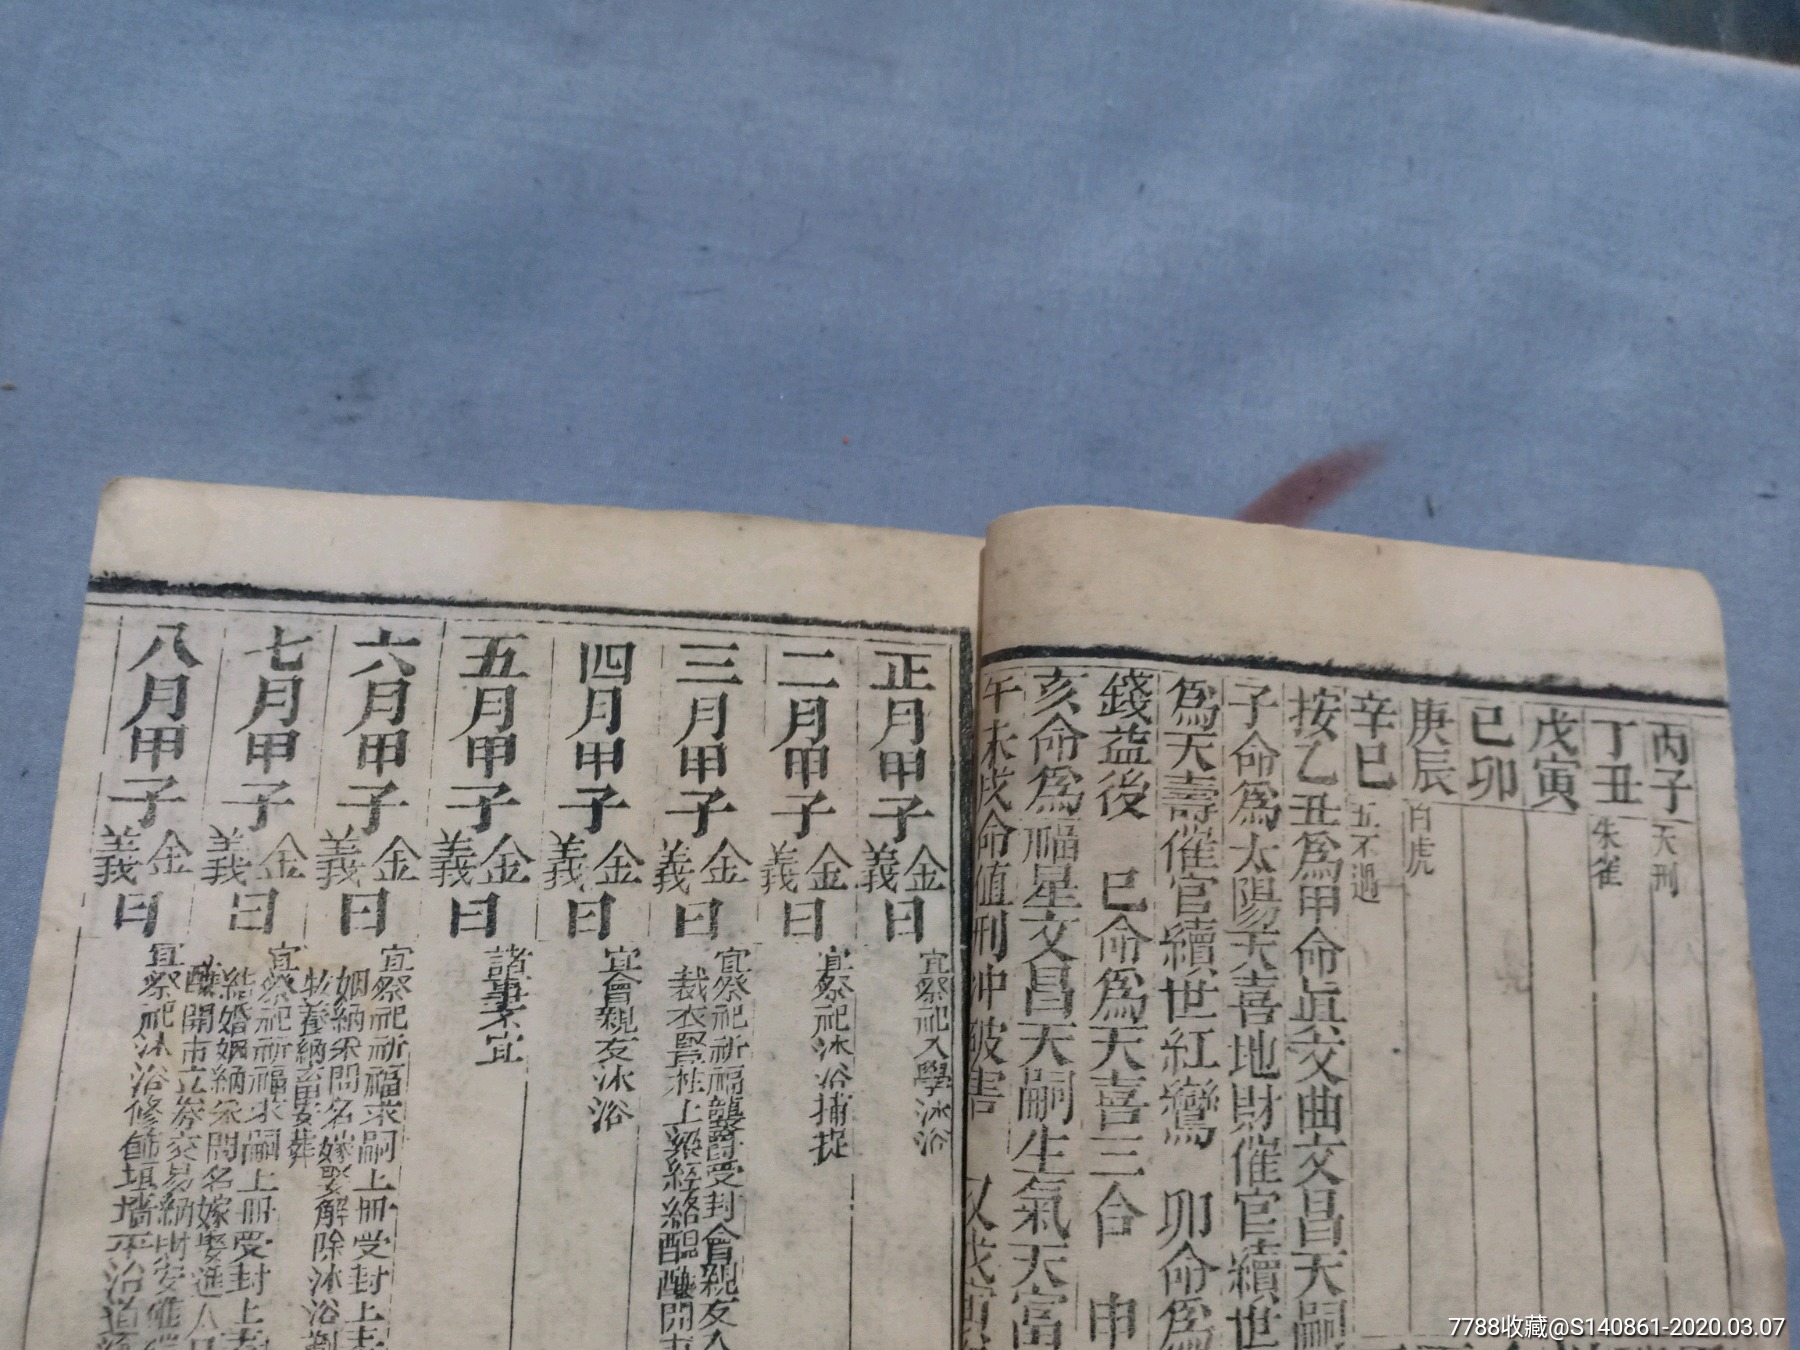 丙子 天刑
丁丑 朱雀
戊寅
己卯
庚辰 白虎
辛巳 五不遇
按乙丑爲甲命眞文曲文昌天嗣
子命爲太陽天喜地財催官續世
爲天壽催官續世紅鸞 卯命爲
錢益後 巳命爲天喜三合 申
亥命爲福星文昌天嗣生氣天富
午未戌命值刑沖破害
正月甲子金義日 宜祭祀入學沐浴
二月甲子金義日 宜祭祀沐浴捕捉
三月甲子金義日 宜祭祀祈福襲爵受封會親友入
裁衣豎柱上梁經絡醞釀開市
四月甲子金義日 宜會親友沐浴
五月甲子金義日 諸事不宜
六月甲子金義日 宜祭祀祈福求嗣上冊受封上
姻納采問名嫁娶解除沐浴
牧養納畜安葬
七月甲子金義日 宜祭祀祈福求嗣上冊受封上
結婚姻納采問名嫁娶進人口
釀開市立券交易納財安
八月甲子金義日 宜祭祀沐浴修飾垣墻平治道
7788收藏@S140861-2020.03.07